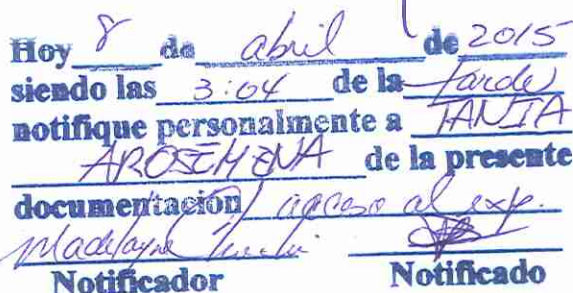 Hoy 8 de abril de 2015
siendo las 3:04 de la tarde
notifique personalmente a TANIA
AROSEMENA de la presente
documentación acceso al exp.
Notificador Notificado